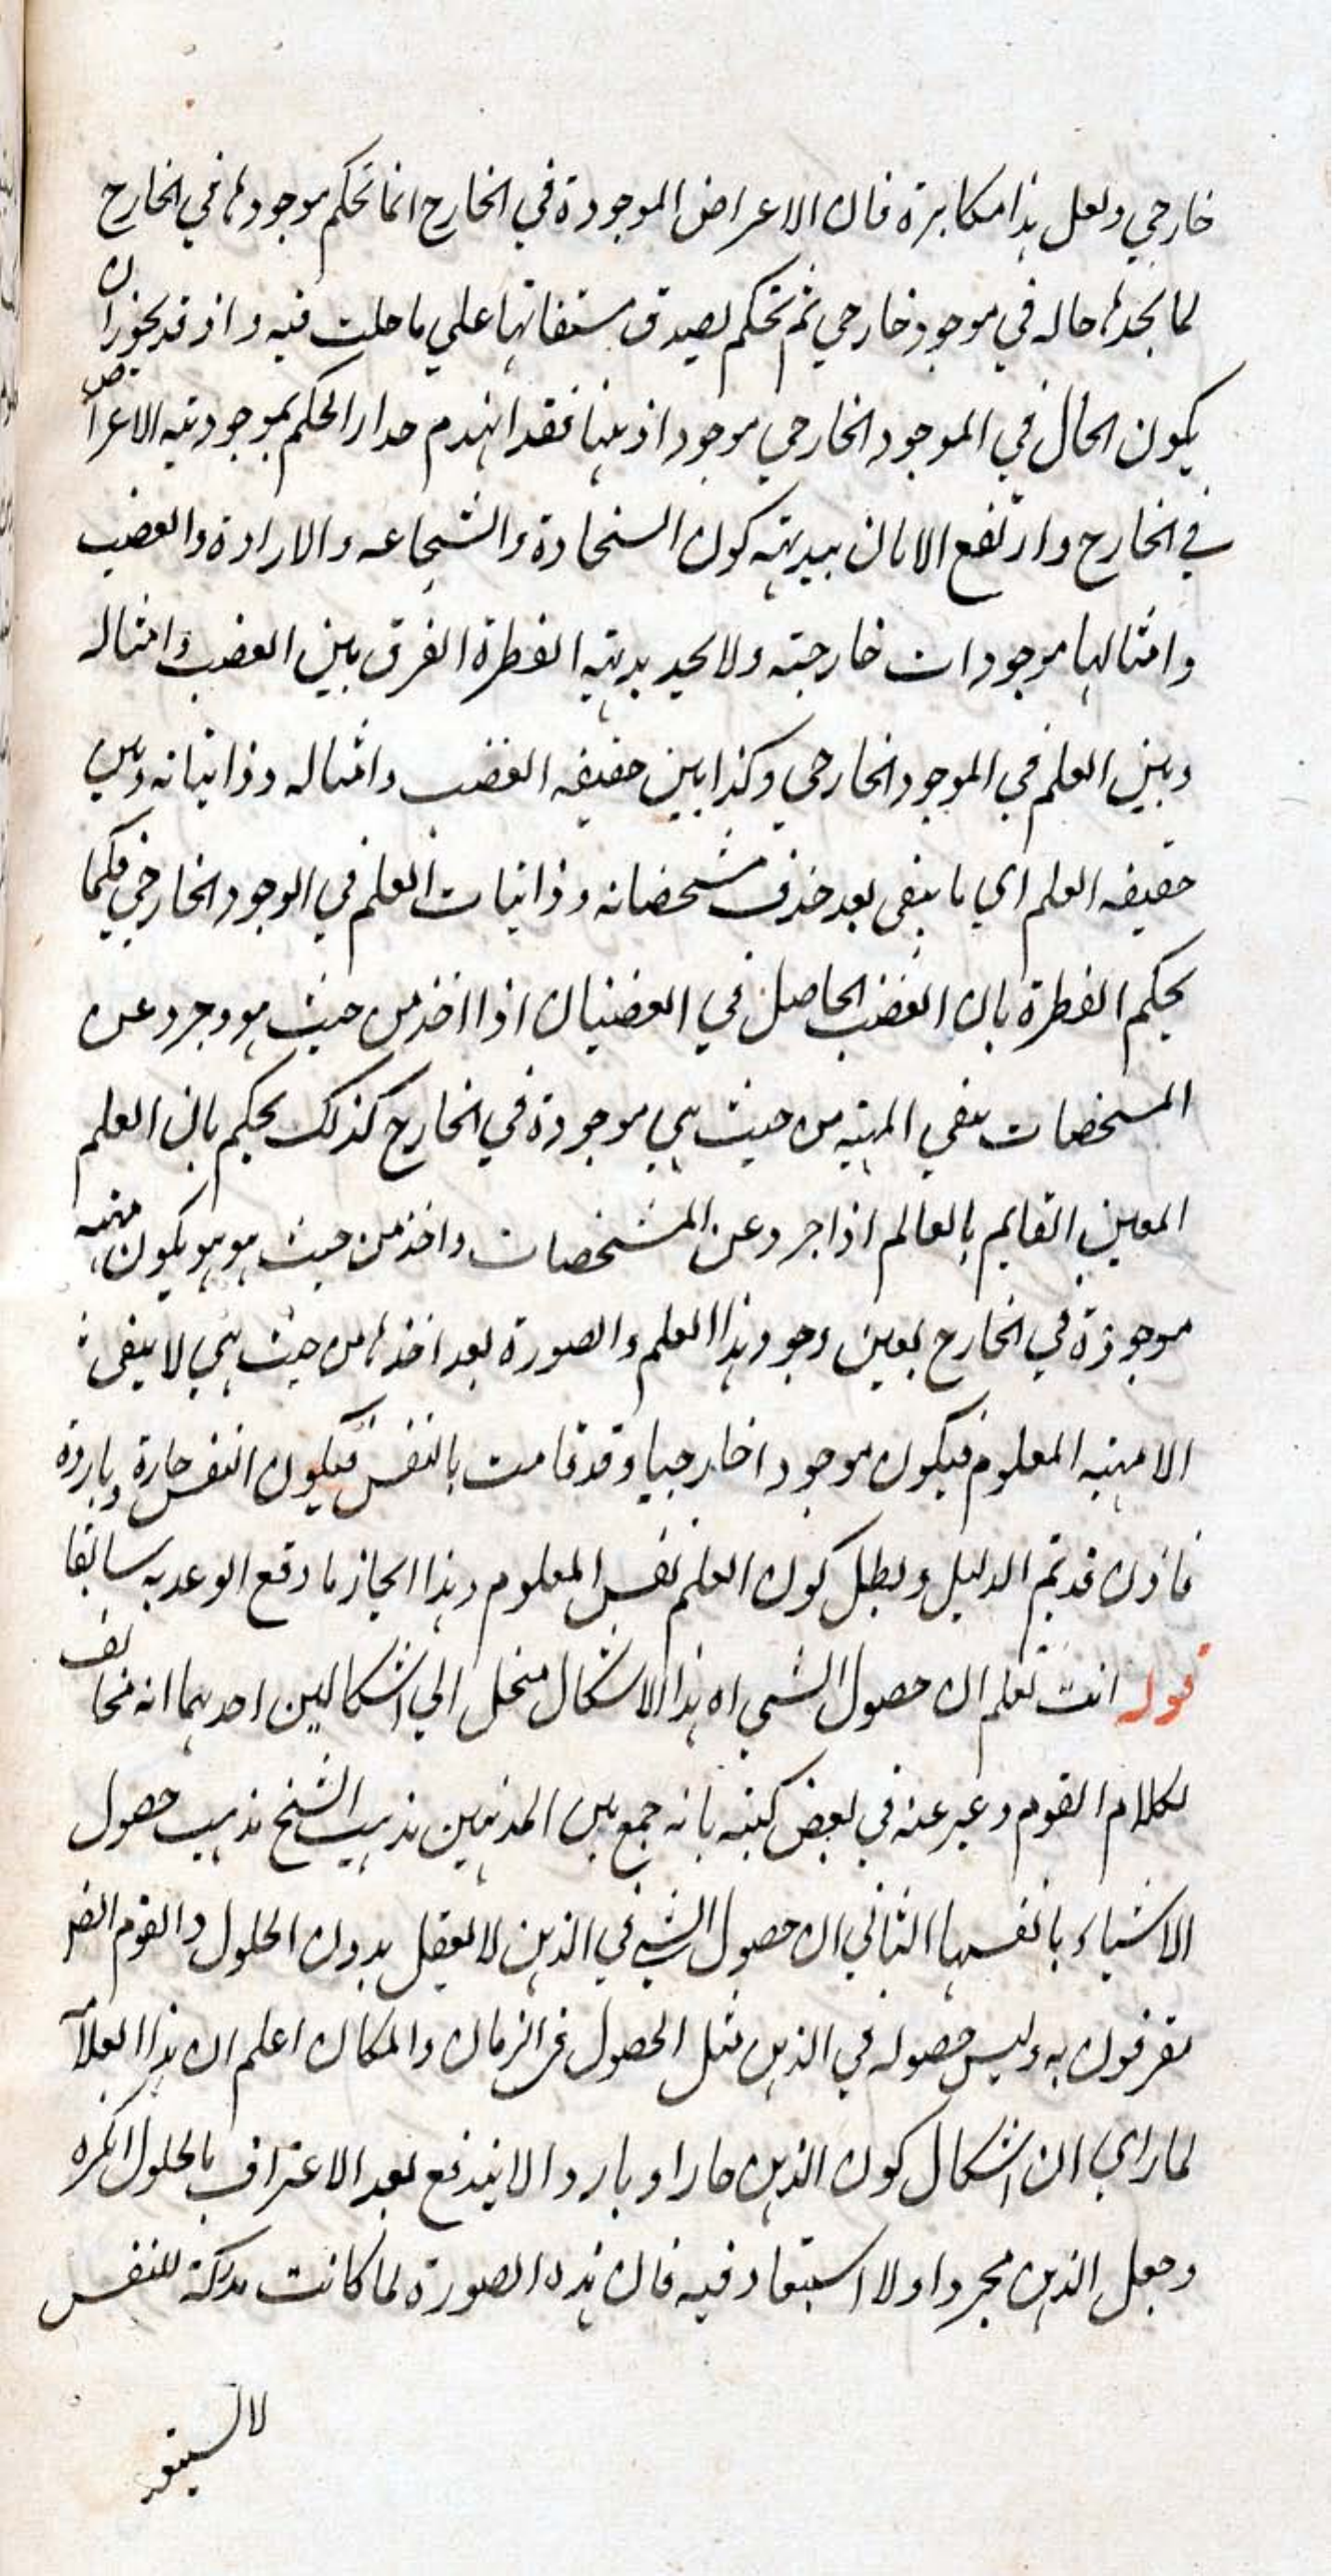 خارجي ولعل هذا مكابرة فان الاعراض الموجودة في الخارج انما تحكم موجودها في الخارج
لما نجدها حاله في موجود خارجي ثم تحكم لصدق مشتقاتها علي ما حلت فيه واذ قد يجوز ان
يكون الحال في الموجود الخارجي موجودا ذهنيا فقد انهدم مدار الحكم بموجودتيه الاعراض
في الخارج وارتفع الامان ببديهته كون السخاوة والشجاعه والارادة والغضب
وامثالها موجودات خارجيته ولا يجد بديهته الفطرة الفرق بين الغضب وامثاله
وبين العلم في الموجود الخارجي وكذا بين حقيقه الغضب وامثاله وذاتياته وبين
حقيقه العلم اي ما يبقي بعد حذف مشخصاته وذاتيات العلم في الوجود الخارجي فكما
يحكم الفطرة بان الغضب الحاصل في الغضبان اذا اخذ من حيث هو وجرد عن
المشخصات يبقي المهيه من حيث هي موجودة في الخارج كذلك يحكم بان العلم
المعين القايم بالعالم اذا جرد عن المشخصات واخذ من حيث هو هو يكون مهيه
موجودة في الخارج بعين وجود هذا العلم والصورة بعد اخذها من حيث هي لا يبقي
الا مهيه المعلوم فيكون موجودا خارجيا وقد قامت بالنفس فيكون النفس حارة وباردة
فاذن قد تم الدليل وبطل كون العلم نفس المعلوم وهذا انجاز ما وقع الوعد به سابقا
قوله انت تعلم ان حصول الشي اه هذا الاشكال منحل الي اشكالين احدهما انه مخالف
لكلام القوم وعبر عنه في بعض كتبه بانه جمع بين المذهبين مذهب الشبح مذهب حصول
الاشياء بانفسها الثاني ان حصول الشي في الذهن لا يعقل بدون الحلول والقوم ايضا
معترفون به وليس حصوله في الذهن مثل الحصول في الزمان والمكان اعلم ان هذا العلامة
لما راي ان اشكال كون الذهن حارا وباردا لا يندفع بعد الاعتراف بالحلول انكره
وجعل الذهن مجردا ولا استبعاد فيه فان هذه الصورة لما كانت مدركة للنفس